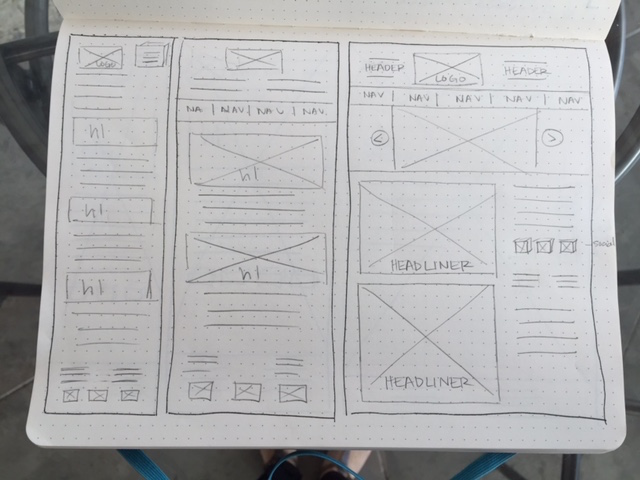 LOGO
h1
h1
h1
NA. | NAV | NAV | NAV
h1
h1
HEADER LOGO HEADER
NAV | NAV | NAV | NAV | NAV
< >
HEADLINER
social
HEADLINER